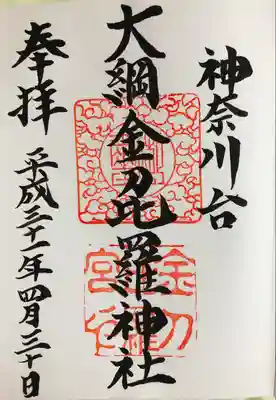 神奈川台
大綱金刀比羅神社
奉拝
平成三十一年四月三十日